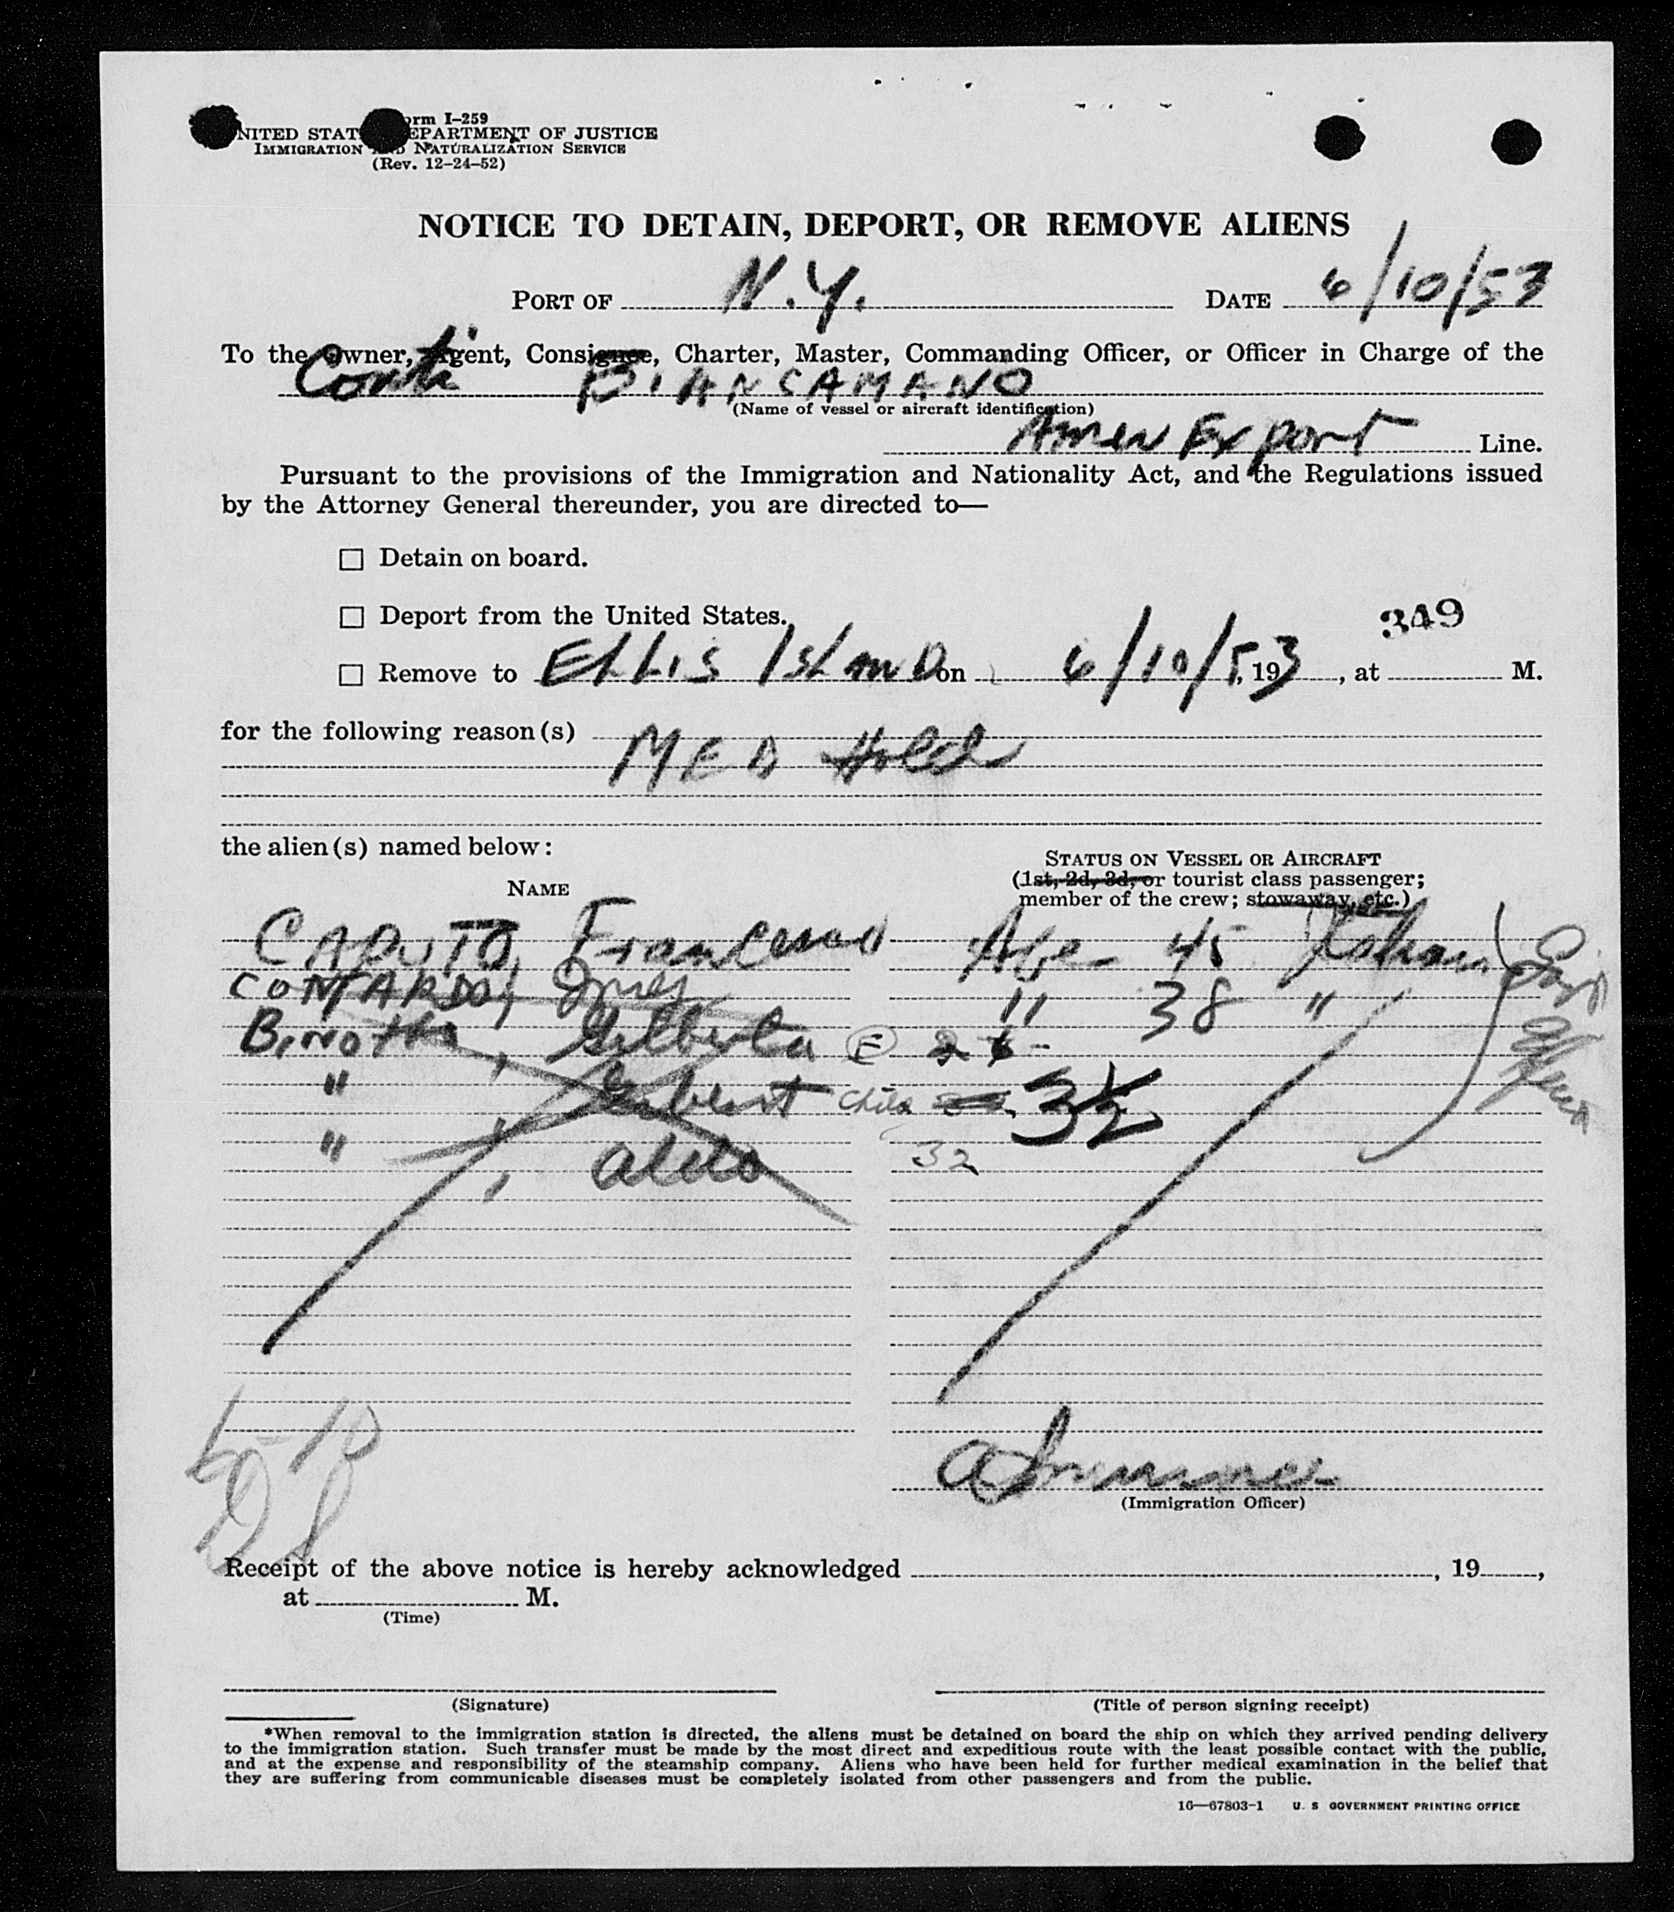 Form I–259
UNITED STATES DEPARTMENT OF JUSTICE
IMMIGRATION AND NATURALIZATION SERVICE
(Rev. 12–24–52)
NOTICE TO DETAIN, DEPORT, OR REMOVE ALIENS
PORT OF N.Y. DATE 6/10/53
To the Owner, Agent, Consignee, Charter, Master, Commanding Officer, or Officer in Charge of the
Conte BIANCAMANO
(Name of vessel or aircraft identification)
Amer Export Line.
Pursuant to the provisions of the Immigration and Nationality Act, and the Regulations issued
by the Attorney General thereunder, you are directed to—
☐ Detain on board.
☐ Deport from the United States.
349
☐ Remove to ELLIS ISLAND on 6/10/5, 193, at M.
for the following reason(s)
MED Hold
the alien(s) named below:
STATUS ON VESSEL OR AIRCRAFT
(1st, 2d, 3d, or tourist class passenger;
member of the crew; stowaway, etc.)
NAME
CAPUTO, Francesco Age 45 Italian
CONTARDO, Ines " 38 "
Binotto, Gilberta F
" , Gilbert child 3½
" , Aldo 32
6-10
(Immigration Officer)
Receipt of the above notice is hereby acknowledged , 19 ,
at M.
(Time)
(Signature) (Title of person signing receipt)
*When removal to the immigration station is directed, the aliens must be detained on board the ship on which they arrived pending delivery
to the immigration station. Such transfer must be made by the most direct and expeditious route with the least possible contact with the public,
and at the expense and responsibility of the steamship company. Aliens who have been held for further medical examination in the belief that
they are suffering from communicable diseases must be completely isolated from other passengers and from the public.
16—67803-1 U. S GOVERNMENT PRINTING OFFICE